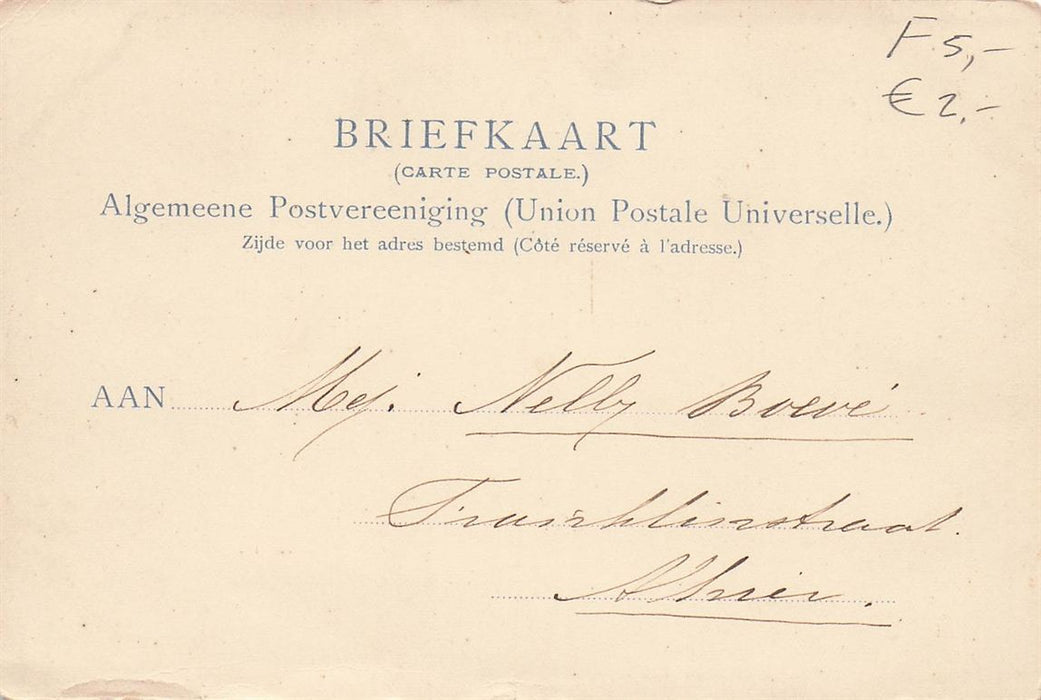 F 5,-
€ 2,-
BRIEFKAART
(CARTE POSTALE.)
Algemeene Postvereeniging (Union Postale Universelle.)
Zijde voor het adres bestemd (Côté réservé à l'adresse.)
AAN Mej. Nelly Boevé
Franklinstraat.
Alhier.